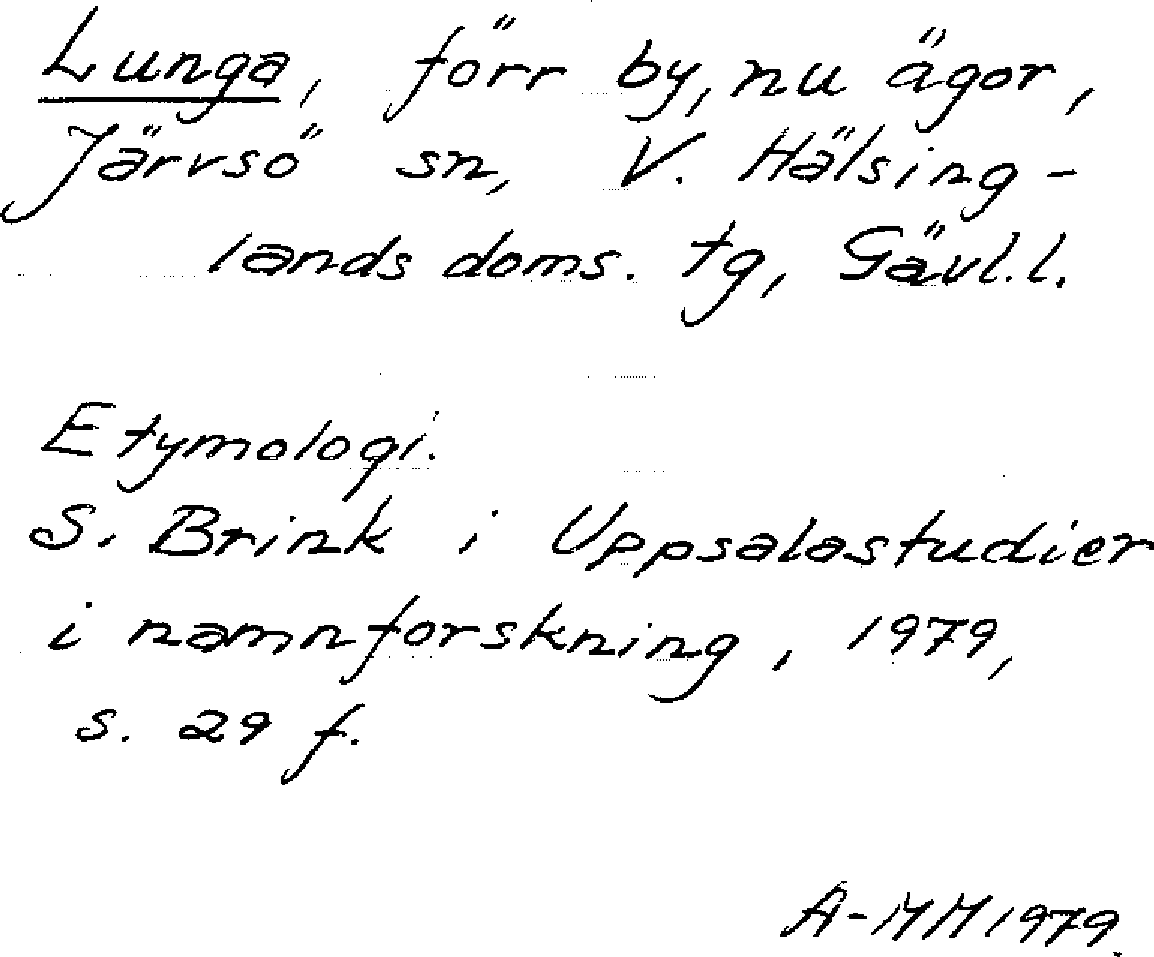 Lunga, förr by, nu ägor,
Järvsö sn, V. Hälsing-
lands doms. tg, Gävl. l.
Etymologi.
S. Brink i Uppsalastudier
i namnforskning, 1979,
s. 29 f.
A-MH 1979.